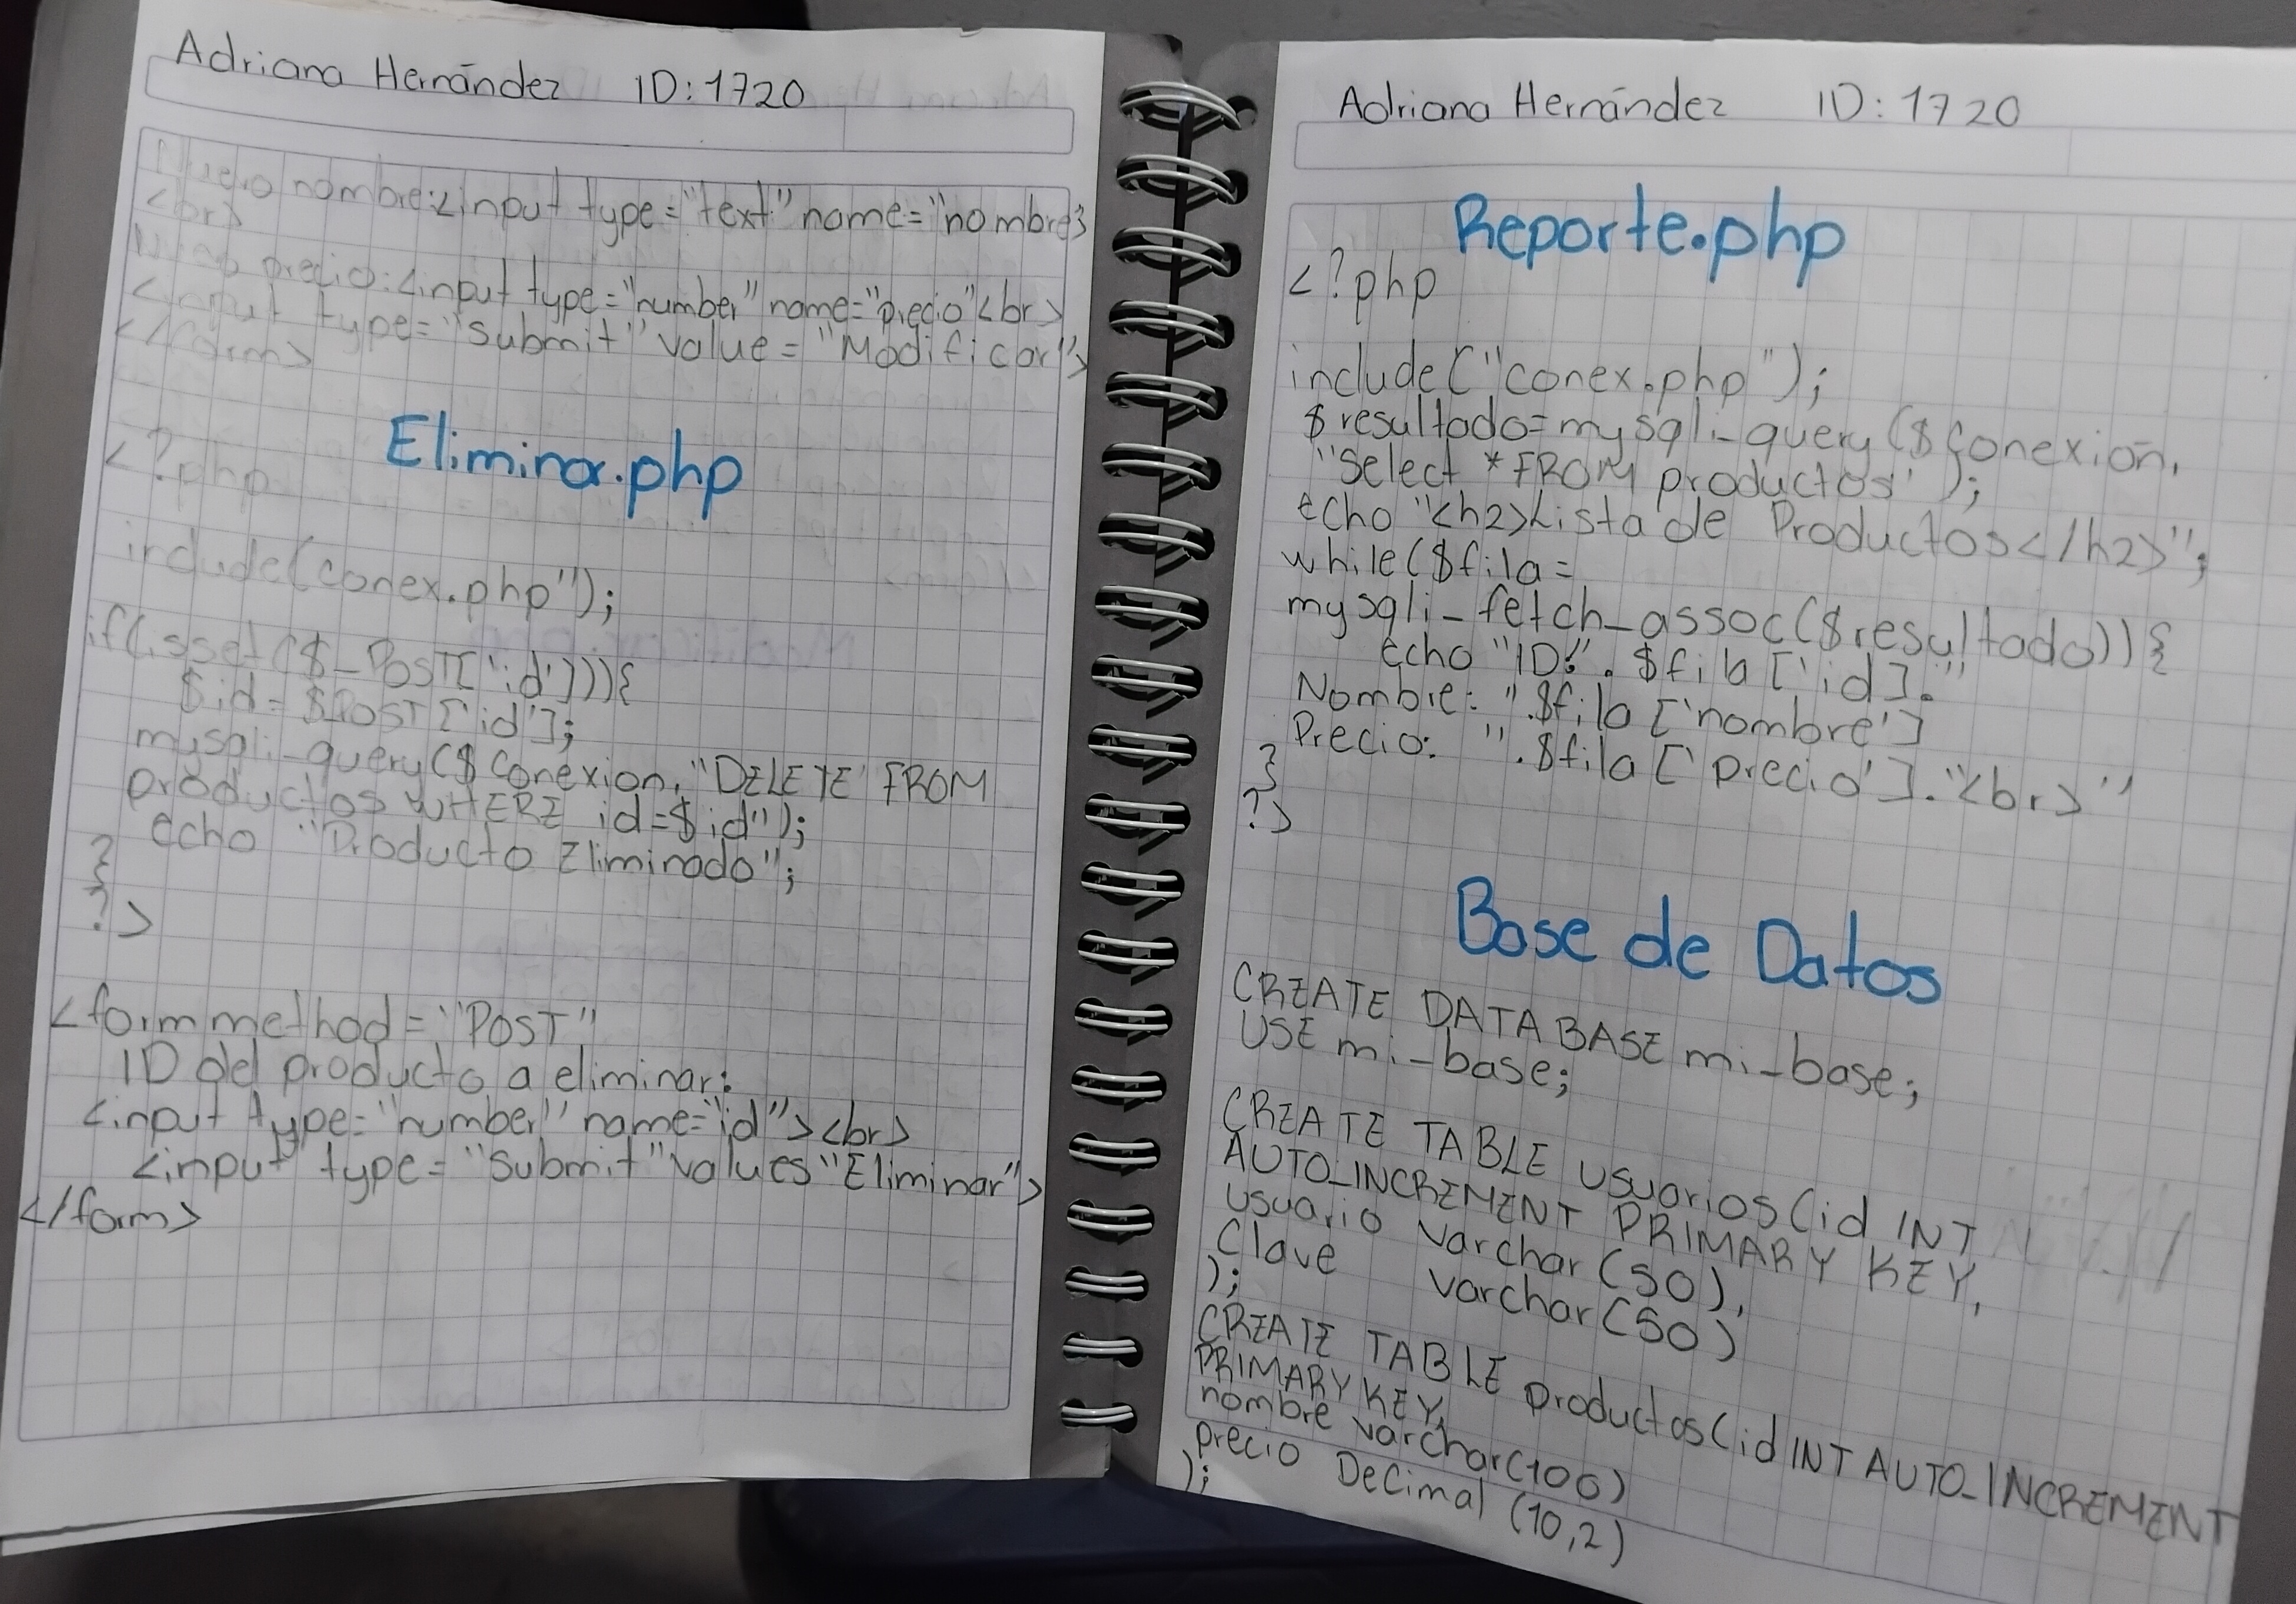 Adriana Hernández ID:1720
Nuevo nombre:<input type="text" name="nombre">
<br>
Nuevo precio:<input type="number" name="precio"<br>
<input type="submit" value="Modificar">
</form>
Eliminar.php
<?php
include(conex.php");
if(isset($_POST['id'])){
$id=$POST['id'];
mysqli_query($conexion,"DELETE FROM
productos WHERE id=$id");
echo "Producto Eliminado";
}
?>
<form method="POST"
ID del producto a eliminar:
<input type="number" name="id"><br>
<input type="submit" values "Eliminar">
</form>
Adriana Hernández ID:1720
Reporte.php
<?php
include("conex.php");
$resultado=mysqli_query($conexión,
"Select *FROM productos");
echo "<h2>Lista de Productos</h2>";
while($fila=
mysqli_fetch_assoc($resultado)){
echo "ID:".$fila['id]."
Nombre: ".$fila['nombre']
Precio: ".$fila['precio']."<br>"
}
?>
Base de Datos
CREATE DATABASE mi_base;
USE mi_base;
CREATE TABLE usuarios(id INT
AUTO_INCREMENT PRIMARY KEY,
usuario varchar(50),
Clave varchar(50)
);
CREATE TABLE productos(id INT AUTO_INCREMENT
PRIMARY KEY,
nombre varchar(100)
precio Decimal (10,2)
);